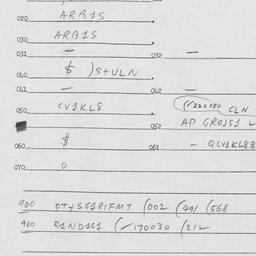 020 ARB1S
030 ARB1S
031 — 032 —
040 $ )S+ULN
041 — 042 —
050 CV1KL8 (✓220080 CLN
052 AP GR0151 L
060 $ 061 — QCV1KL88
070 0
900 OT+SG1RIFMT (002 (491 (568
900 R1ND1G1 (✓170030 (212